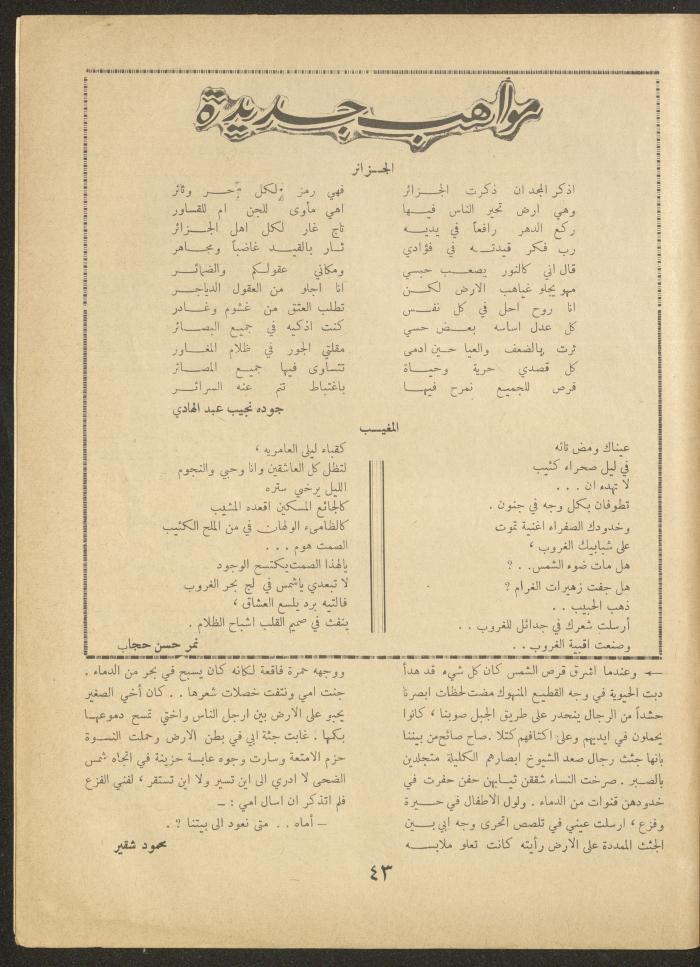 مواهب جديدة
الجـزائر
اذكر المجد ان ذكرت الجـزائر فهي رمز لكل حـر وثائر
وهي ارض تحير الناس فيـها اهي مأوى للجن ام للقساور
ركع الدهر رافعاً في يديـه تاج غار لكل اهل الجـزائر
رب فكر قيدتـه في فؤادي ثـار بالقيـد غاضباً ومجـاهر
قال اني كالنور يصعـب حبسي ومكاني عقولـكم والضمائـر
مهو يجلو غياهب الارض لكـن انا اجلو من العقول الدياجـر
انا روح احل في كل نفـس تطلب العتق من غشوم وغـادر
كل عدل اساسه بعـض حسي كنت اذكيه في جميع البصـائر
ثرت بالضعف والعيا حـين ادمى مقلتي الجور في ظلام المغـاور
كل قصدي حرية وحيـاة تتساوى فيها جميـع المصـائر
فرص للجميع نمرح فيهـا باغتباط تنم عنه السرائـر
جوده نجيب عبد الهادي
المغيـب
عيناك ومض تائه
في ليل صحراء كئيب
لا تهدء ان . . .
تطوفان بكل وجه في جنون .
وخدودك الصفراء اغنية تموت
على شبابيك الغروب ،
هل مات ضوء الشمس. . ؟
هل جفت زهيرات الغرام ؟
ذهب الحبيب . .
أرسلت شعرك في جدائل للغروب . .
وصنعت اقبية الغروب . .
كقباء ليلى العامريه ،
لتظل كل العاشقين وانا وحبي والنجوم
الليل يرخي ستره
كالجائع المسكين اقعده المشيب
كالظامىء الولهان في من الملح الكئيب
الصمت هوم . . .
يالهذا الصمت يكتسح الوجود
لا تبعدي ياشمس في لج بحر الغروب
فالتيه برد يلسع العشاق ،
ينفث في صميم القلب اشباح الظلام .
نمر حسن حجاب
← وعندما اشرق قرص الشمس كان كل شيء قد هدأ
دبت الحيوية في وجه القطيع المنهوك مضت لحظات ابصرنا
حشداً من الرجال ينحدر على طريق الجبل صوبنا ، كانوا
يحملون في ايديهم وعلى اكتافهم كتلا . صاح صائح من بيننا
بانها جثث رجال صعد الشيوخ ابصارهم الكليلة متجلدين
بالصـبر . صرخت النساء شققن ثيـابهن حفن حفرت في
خدودهن قنوات من الدماء . ولول الاطفال في حـيرة
وفزع ، ارسلت عيني في تلصص اتحرى وجه ابي بـين
الجثث الممددة على الارض رأيته كانت تعلو ملابسـه
ووجهه حمرة فاقعة لكانه كان يسبح في بحر من الدماء .
جنت امي ونتفت خصلات شعرها . . كان أخي الصغير
يحبو على الارض بين ارجل الناس واختي تمسح دموعهـا
بكمها . غابت جثة ابي في بطن الارض وحملت النسـوة
حزم الامتعة وسارت وجوه عابسة حزينة في اتجاه شمس
الضحى لا ادري الى اين تسير ولا اين تستقر ، لفني الفزع
فلم اتذكر ان اسال امي : ـ
– أماه . . متى نعود الى بيتنا ؟ .
محمود شقير
٤٣